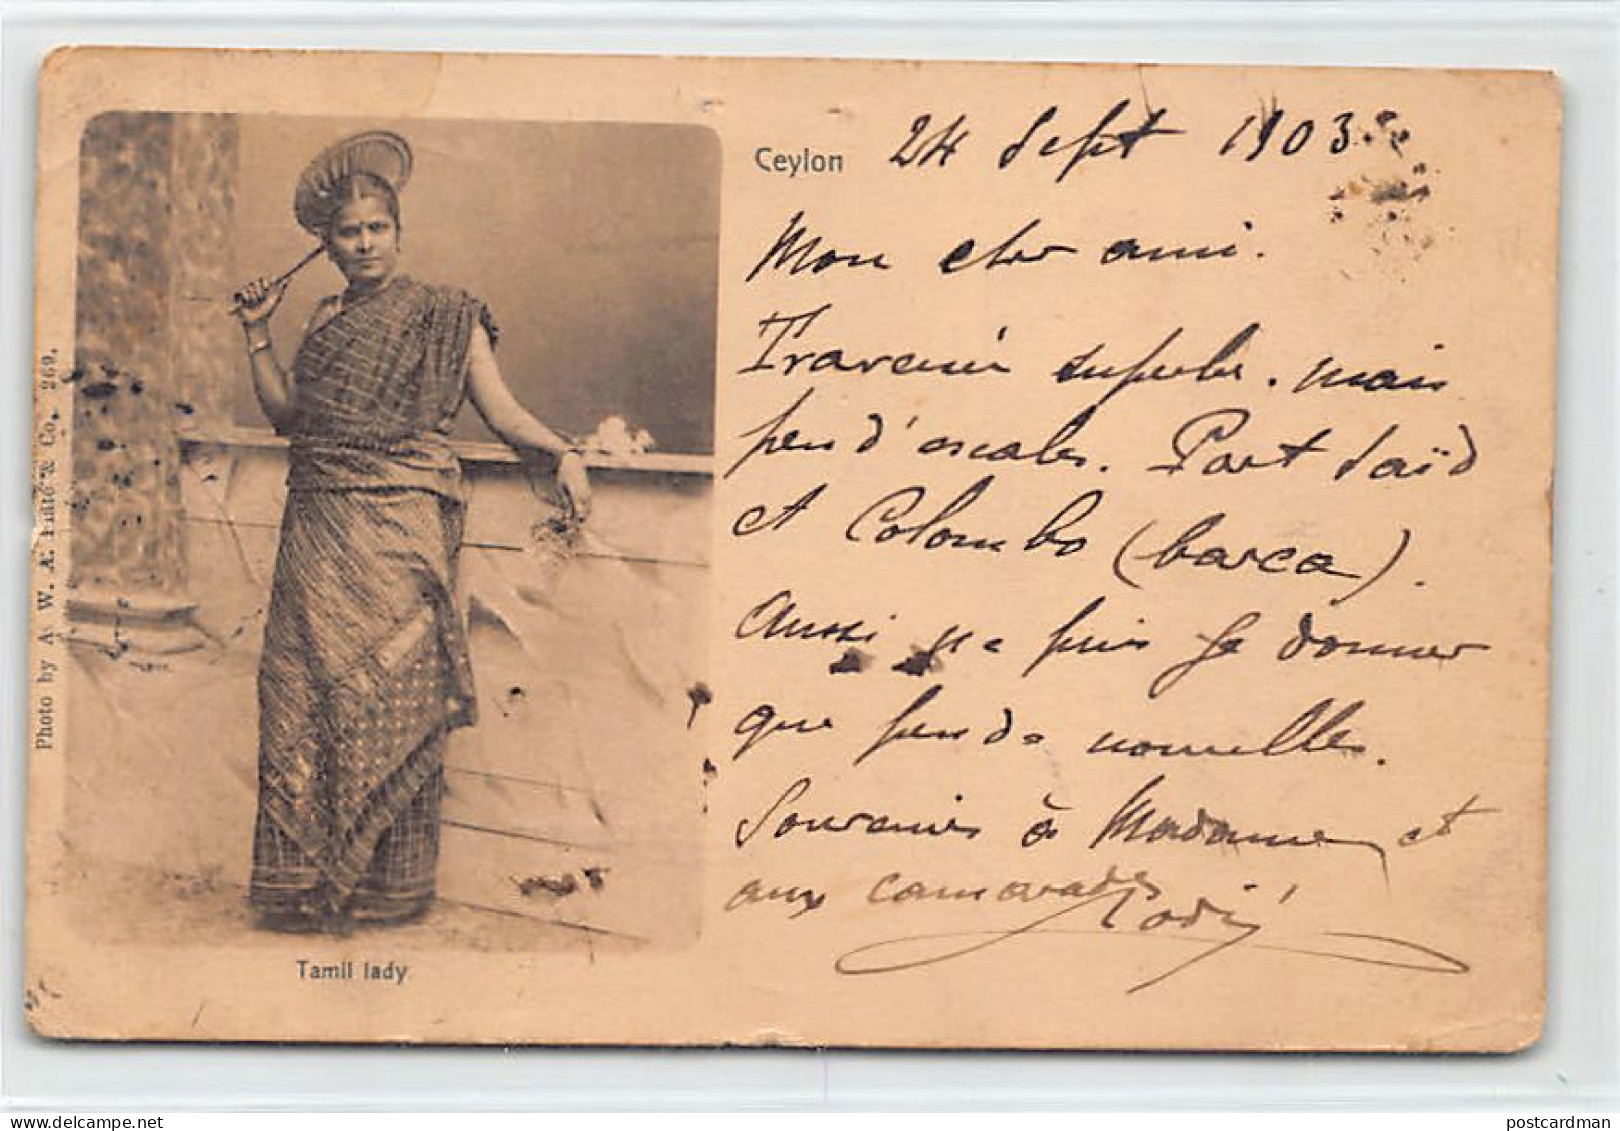 Ceylon 24 Sept 1903
Mon cher ami.
Traversée superbe. mais
peu d'escales. Port Saïd
et Colombo (barca).
Aussi ne puis je donner
que peu de nouvelles.
Souvenirs à Madame et
aux camarades
Photo by A. W. A. Plâté & Co. 269.
Tamil lady
postcardman